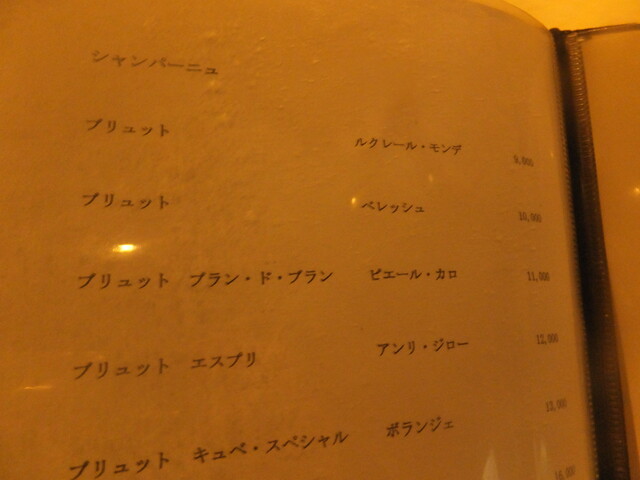 シャンパーニュ
ブリュット ルクレール・モンデ 9,000
ブリュット ベレッシュ 10,000
ブリュット ブラン・ド・ブラン ピエール・カロ 11,000
ブリュット エスプリ アンリ・ジロー 12,000
ブリュット キュベ・スペシャル ボランジェ 13,000
16,000